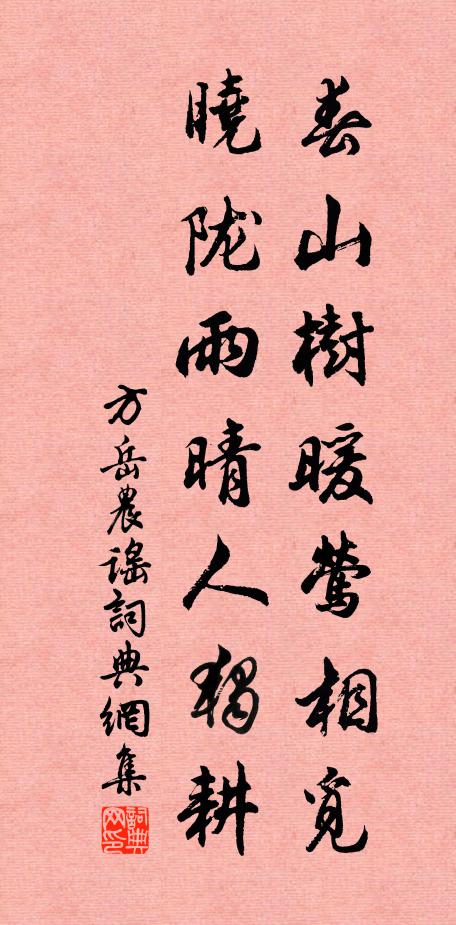 春山樹暖鶯相覓
曉陇雨晴人獨耕
方岳農謠詞典網集
詞典网印